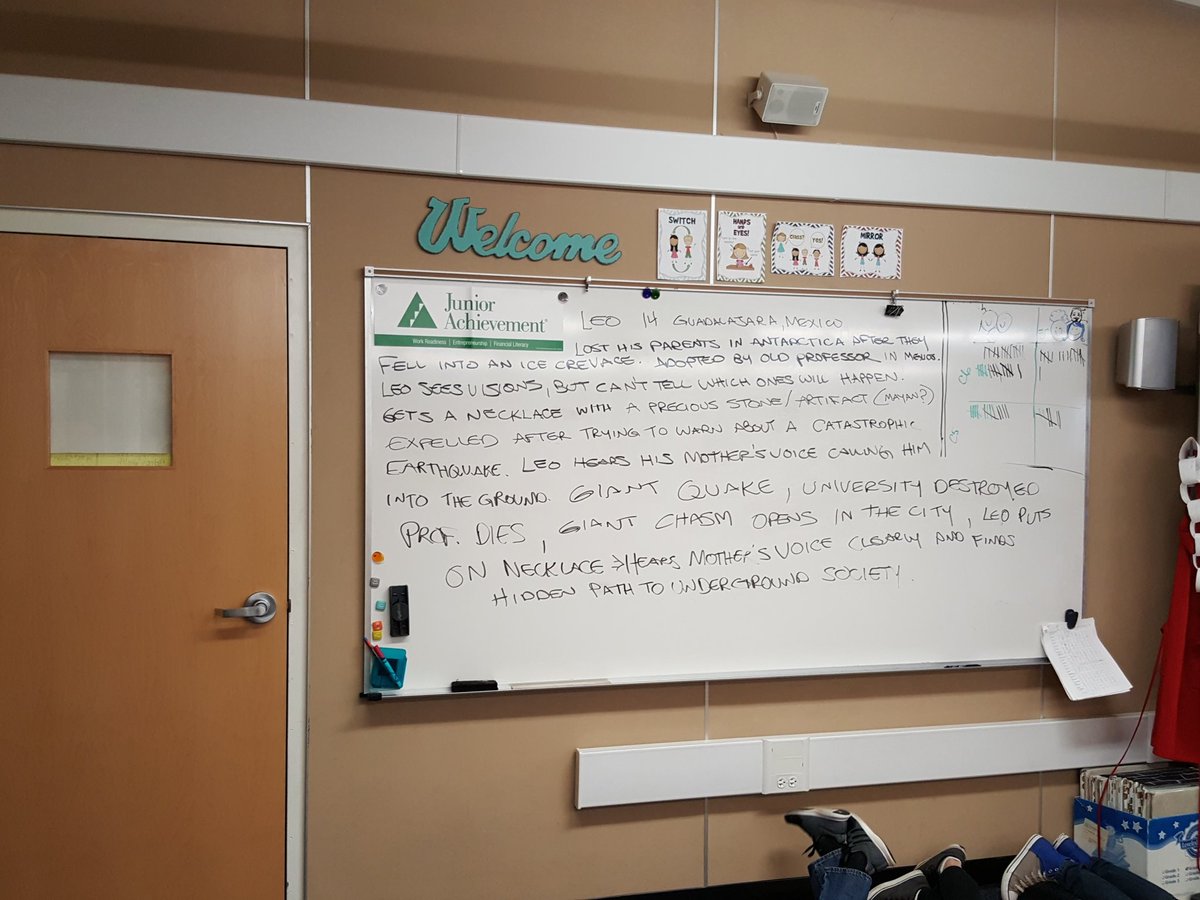 Welcome
SWITCH
HANDS
and
EYES!
CLASS!
YES!
MIRROR
Junior
Achievement
Work Readiness | Entrepreneurship | Financial Literacy
LEO 14 GUADALAJARA, MEXICO
LOST HIS PARENTS IN ANTARCTICA AFTER THEY
FELL INTO AN ICE CREVACE. ADOPTED BY OLD PROFESSOR IN
LEO SEES VISIONS, BUT CAN'T TELL WHICH ONES WILL HAPPEN.
GETS A NECKLACE WITH A PRECIOUS STONE/ARTIFACT (MAYAN?)
EXPELLED AFTER TRYING TO WARN ABOUT A CATASTROPHIC
EARTHQUAKE. LEO HEARS HIS MOTHER'S VOICE CALLING HIM
INTO THE GROUND. GIANT QUAKE, UNIVERSITY DESTROYED
PROF. DIES, GIANT CHASM OPENS IN THE CITY, LEO PUTS
ON NECKLACE → HEARS MOTHER'S VOICE CLEARLY AND FINDS
HIDDEN PATH TO UNDERGROUND SOCIETY.